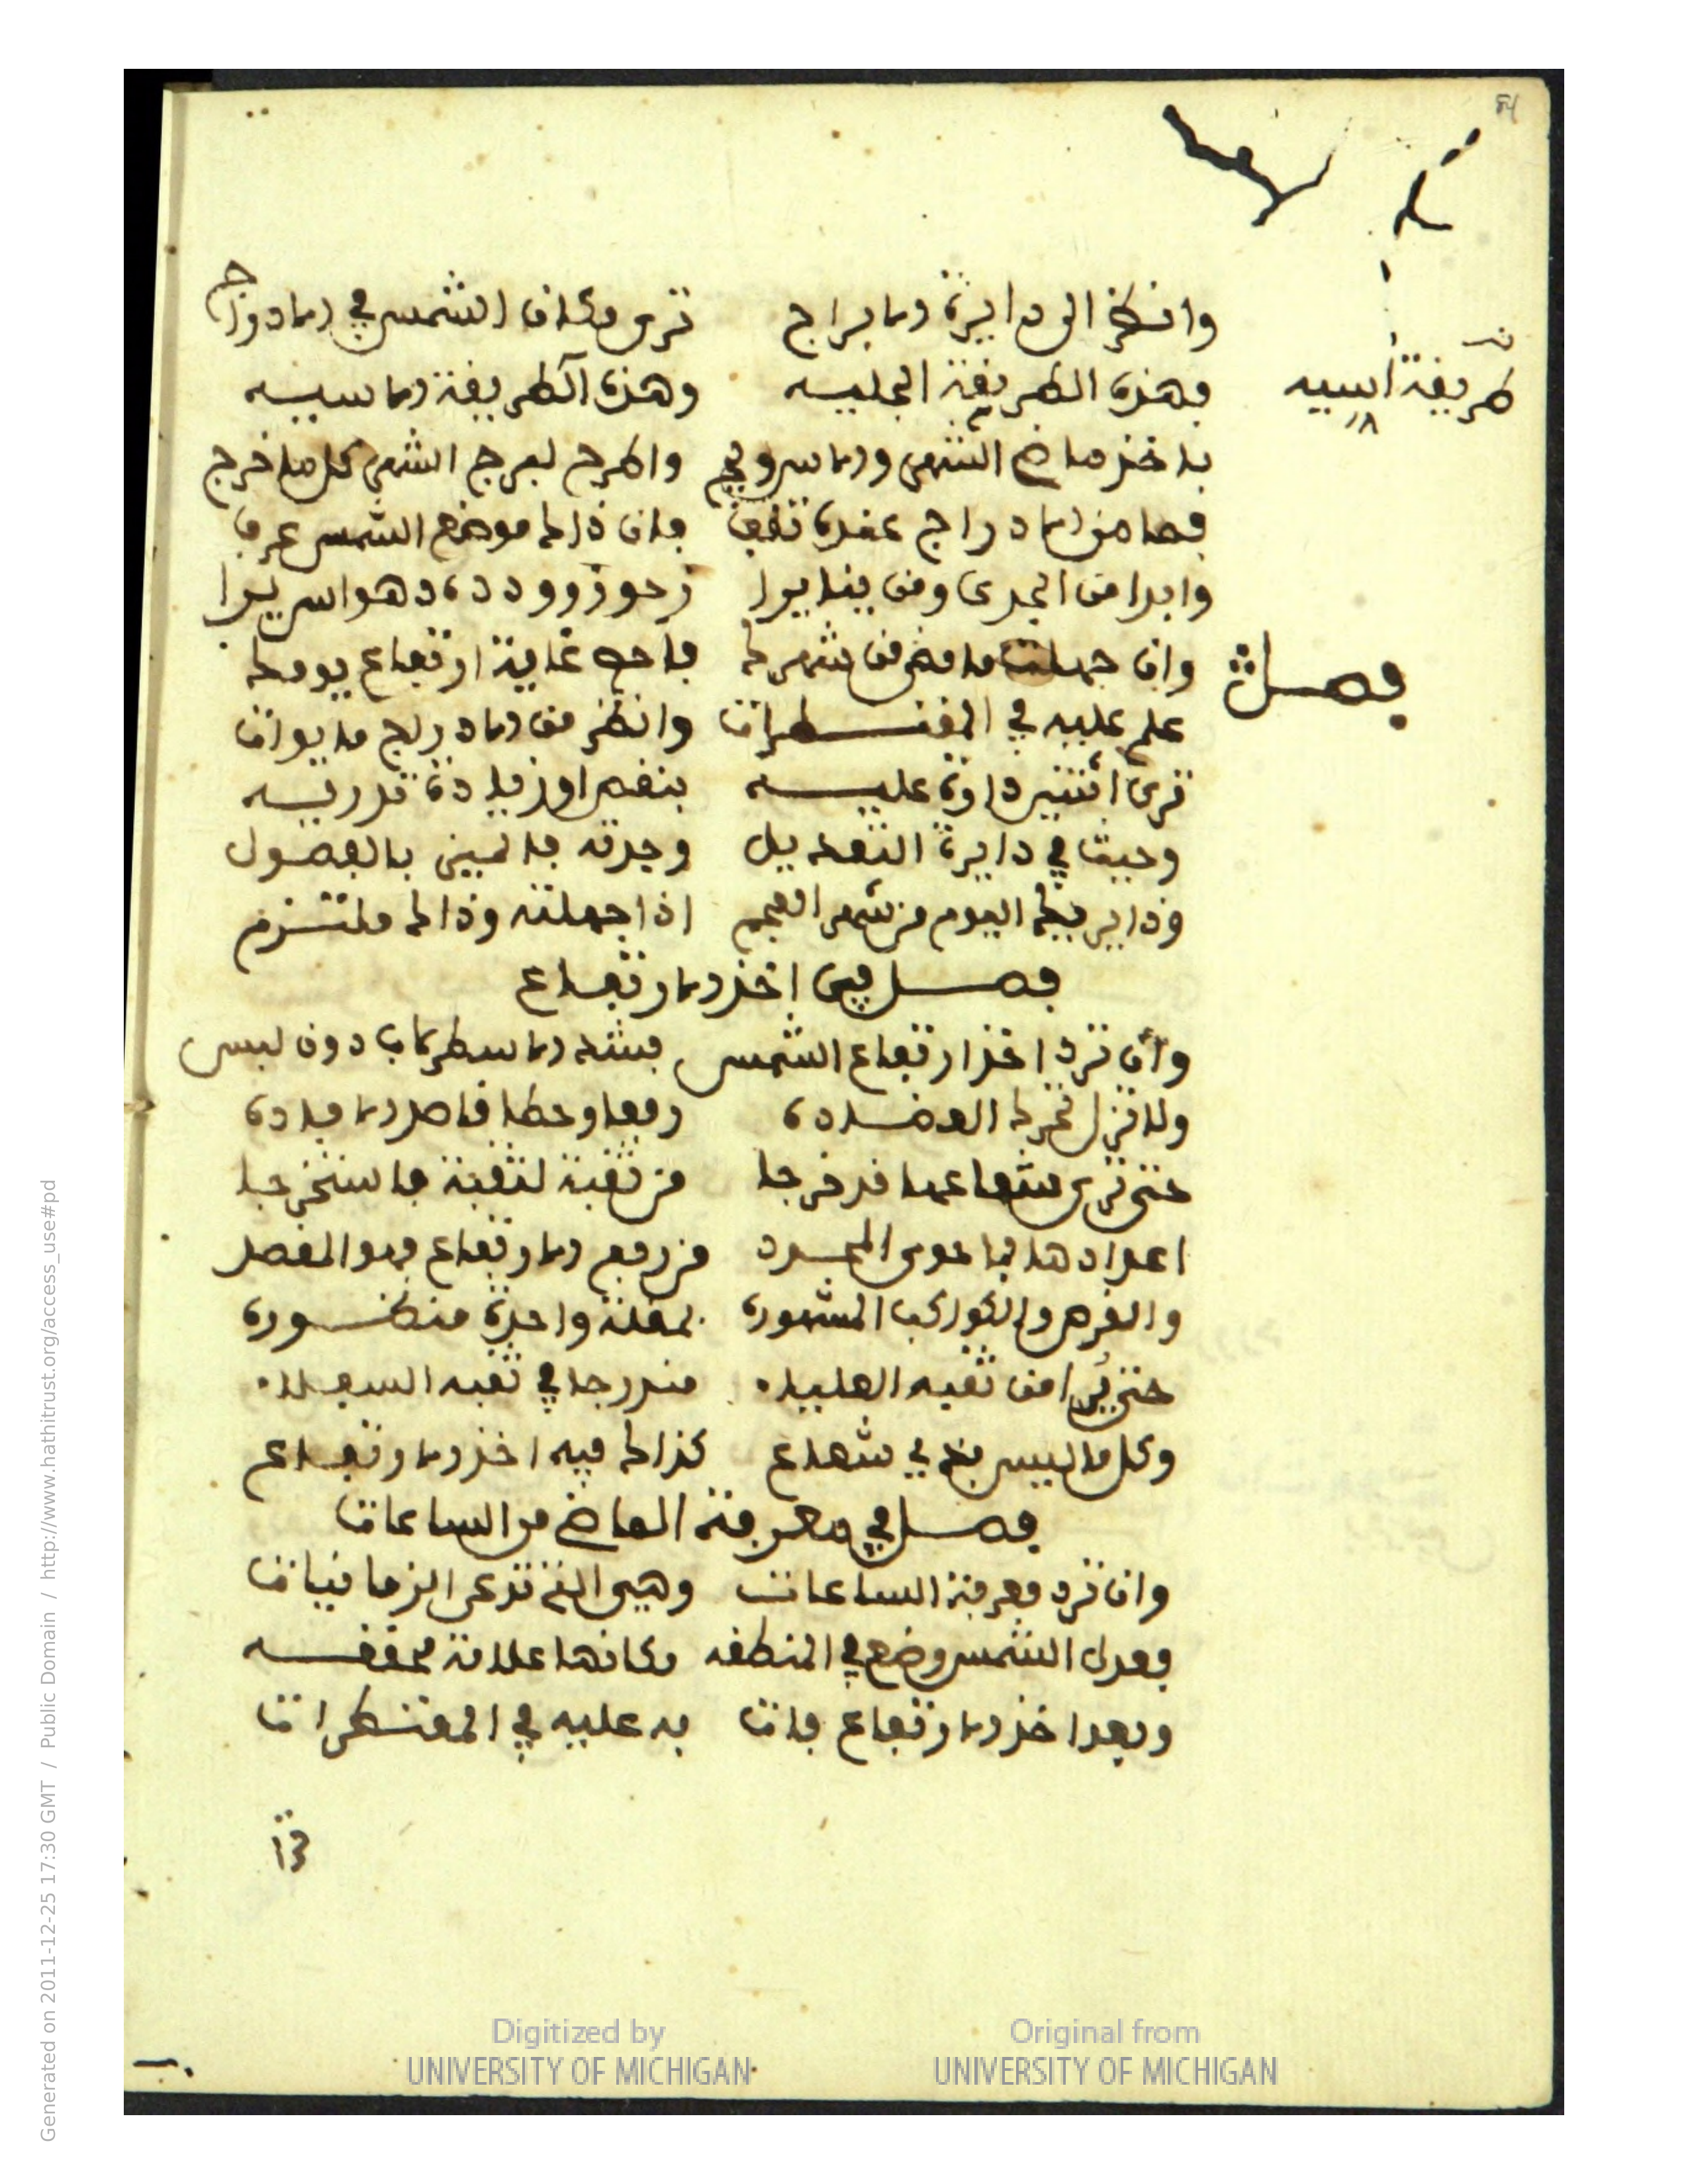 84
وانظر الى دايرة الابراج ترى مكان الشمس في الادراج
فهذه الطريقة الجليه وهذه الطريقة الاسيه
طريقة اسيه
باخذ ماض الشهر والاس وفي واطرح لبرج الشهر كل ما خرج
فما من الادراج عنده تقف فان ذاك موضع الشمس عرف
وابدا من الجدى ومن ينايرا
فصل
وان جهلت ما مضى من شهرك فاحص غاية ارتفاع يومك
علم عليه في المقنطرات وانظر من الادراج ما يوات
ترى اثنتين دارة عليه بنقص او زيادة تدريه
وجيت في دايرة التعديل وجدته فالميز بالفصول
وذا يريك اليوم من شهر العجم اذا جهلته وذاك ملتزم
فصل في اخذ الارتفاع
وان ترد اخذ ارتفاع الشمس فشد الاسطرلاب دون لبس
ولا تزل تحرك العضاده رفعا وحطا فاصد الافاده
حتى ترى شعاعها قد خرجا من ثقبة لثقبة فاستخرجا
اعدادها بما حوى المحدد من ربع الارتفاع فهو المقصد
والقمر والكواكب المشهوره بمقلة واحدة منظوره
حتى يرا من ثقبه العليا مندرجا في ثقبه السفلا
وكل ما ليس بذي شعاع كذاك فيه اخذ الارتفاع
فصل في معرفة الماض من الساعات
وان ترد معرفة الساعات وهي التي تدعى الزمانيات
فعدل الشمس وضع في المنطقه مكانها علامة محققه
وبعد اخذ الارتفاع فات به عليه في المقنطرات
Digitized by UNIVERSITY OF MICHIGAN
Original from UNIVERSITY OF MICHIGAN
Generated on 2011-12-25 17:30 GMT / Public Domain / http://www.hathitrust.org/access_use#pd